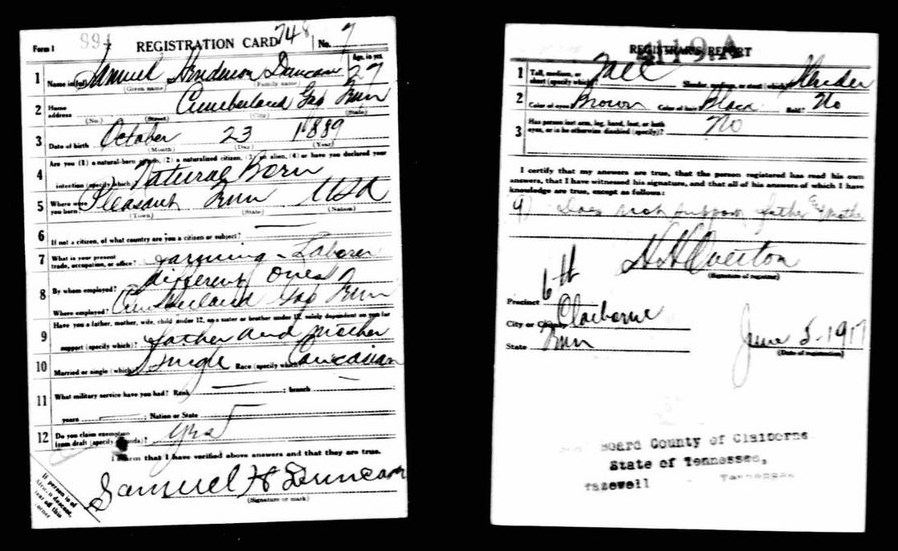 Form 1 994 REGISTRATION CARD 748 No. 7
1 Name in full Samuel Henderson Duncan Age, in yrs. 27
(Given name) (Family name)
2 Home address Cumberland Gap Tenn
(No.) (Street) (City)
3 Date of birth October 23 1889
(Month) (Day) (Year)
4 Are you (1) a natural-born citizen, (2) a naturalized citizen, (3) an alien, (4) or have you declared your
intention (specify which)? Natural Born
5 Where were you born? Pleasant Tenn USA
(Town) (State) (Nation)
6 If not a citizen, of what country are you a citizen or subject? —
7 What is your present trade, occupation, or office? Farming - Laborer
8 By whom employed? different ones
Where employed? Cumberland Gap Tenn
9 Have you a father, mother, wife, child under 12, or a sister or brother under 12, solely dependent on you for
support (specify which)? Father and mother
10 Married or single (which)? Single Race (specify which)? Caucasian
11 What military service have you had? Rank — ; branch
years ; Nation or State
12 Do you claim exemption from draft (specify grounds)? Yes
I affirm that I have verified above answers and that they are true.
Samuel H Duncan
(Signature or mark)
If person is of
African descent,
cut off this
corner
41 19 A
REGISTRAR'S REPORT
1 Tall, medium, or short (specify which)? Tall Slender, medium, or stout (which)? Slender
2 Color of eyes? Brown Color of hair? Black Bald? No
3 Has person lost arm, leg, hand, foot, or both
eyes, or is he otherwise disabled (specify)? No
I certify that my answers are true, that the person registered has read his own
answers, that I have witnessed his signature, and that all of his answers of which I have
knowledge are true, except as follows:
9) Does not support father & mother
H H Overton
(Signature of registrar)
Precinct 6th
City or County Claiborne
State Tenn
June 5 - 1917
(Date of registration)
Board County of Claiborne
State of Tennessee,
Tazewell Tennessee